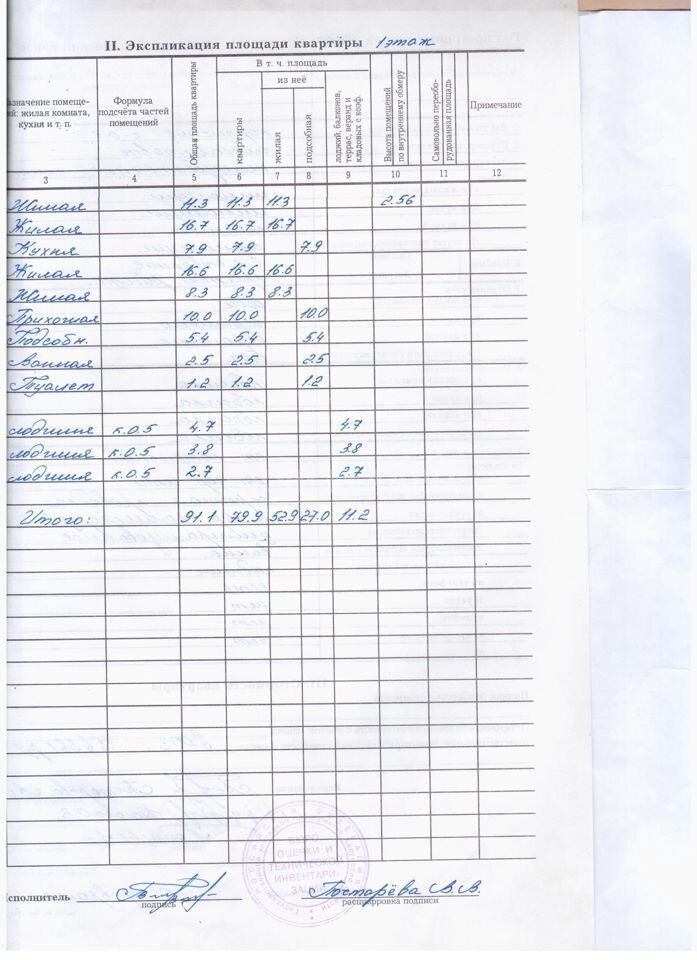 II. Экспликация площади квартиры 1 этаж
азначение помеще-
ий: жилая комната,
кухня и т. п.
Формула
подсчёта частей
помещений
Общая площадь квартиры
В т. ч. площадь
квартиры
из неё
жилая
подсобная
лоджий, балконов,
террас, веранд и
кладовых с коэф.
Высота помещений
по внутреннему обмеру
Самовольно переобо-
рудованная площадь
Примечание
3 4 5 6 7 8 9 10 11 12
Жилая 11.3 11.3 11.3 2.56
Жилая 16.7 16.7 16.7
Кухня 7.9 7.9 7.9
Жилая 16.6 16.6 16.6
Жилая 8.3 8.3 8.3
Прихожая 10.0 10.0 10.0
Подсобн. 5.4 5.4 5.4
Ванная 2.5 2.5 2.5
Туалет 1.2 1.2 1.2
лоджия к.0.5 4.7 4.7
лоджия к.0.5 3.8 3.8
лоджия к.0.5 2.7 2.7
Итого: 91.1 79.9 52.9 27.0 11.2
БЮРО
ОЦЕНКИ И
ТЕХНИЧЕСКОЙ
ИНВЕНТАРИ-
ЗАЦИИ
Исполнитель
подпись
расшифровка подписи